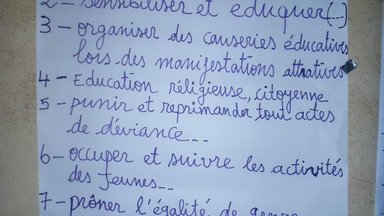 2 - sensibiliser et eduquer (...)
3 - organiser des causeries éducatives
lors des manifestations attractives
4 - Education réligieuse, citoyenne
5 - punir et reprimander tout actes
de déviance...
6 - occuper et suivre les activités
des jeunes...
7 - prôner l'égalité de genre